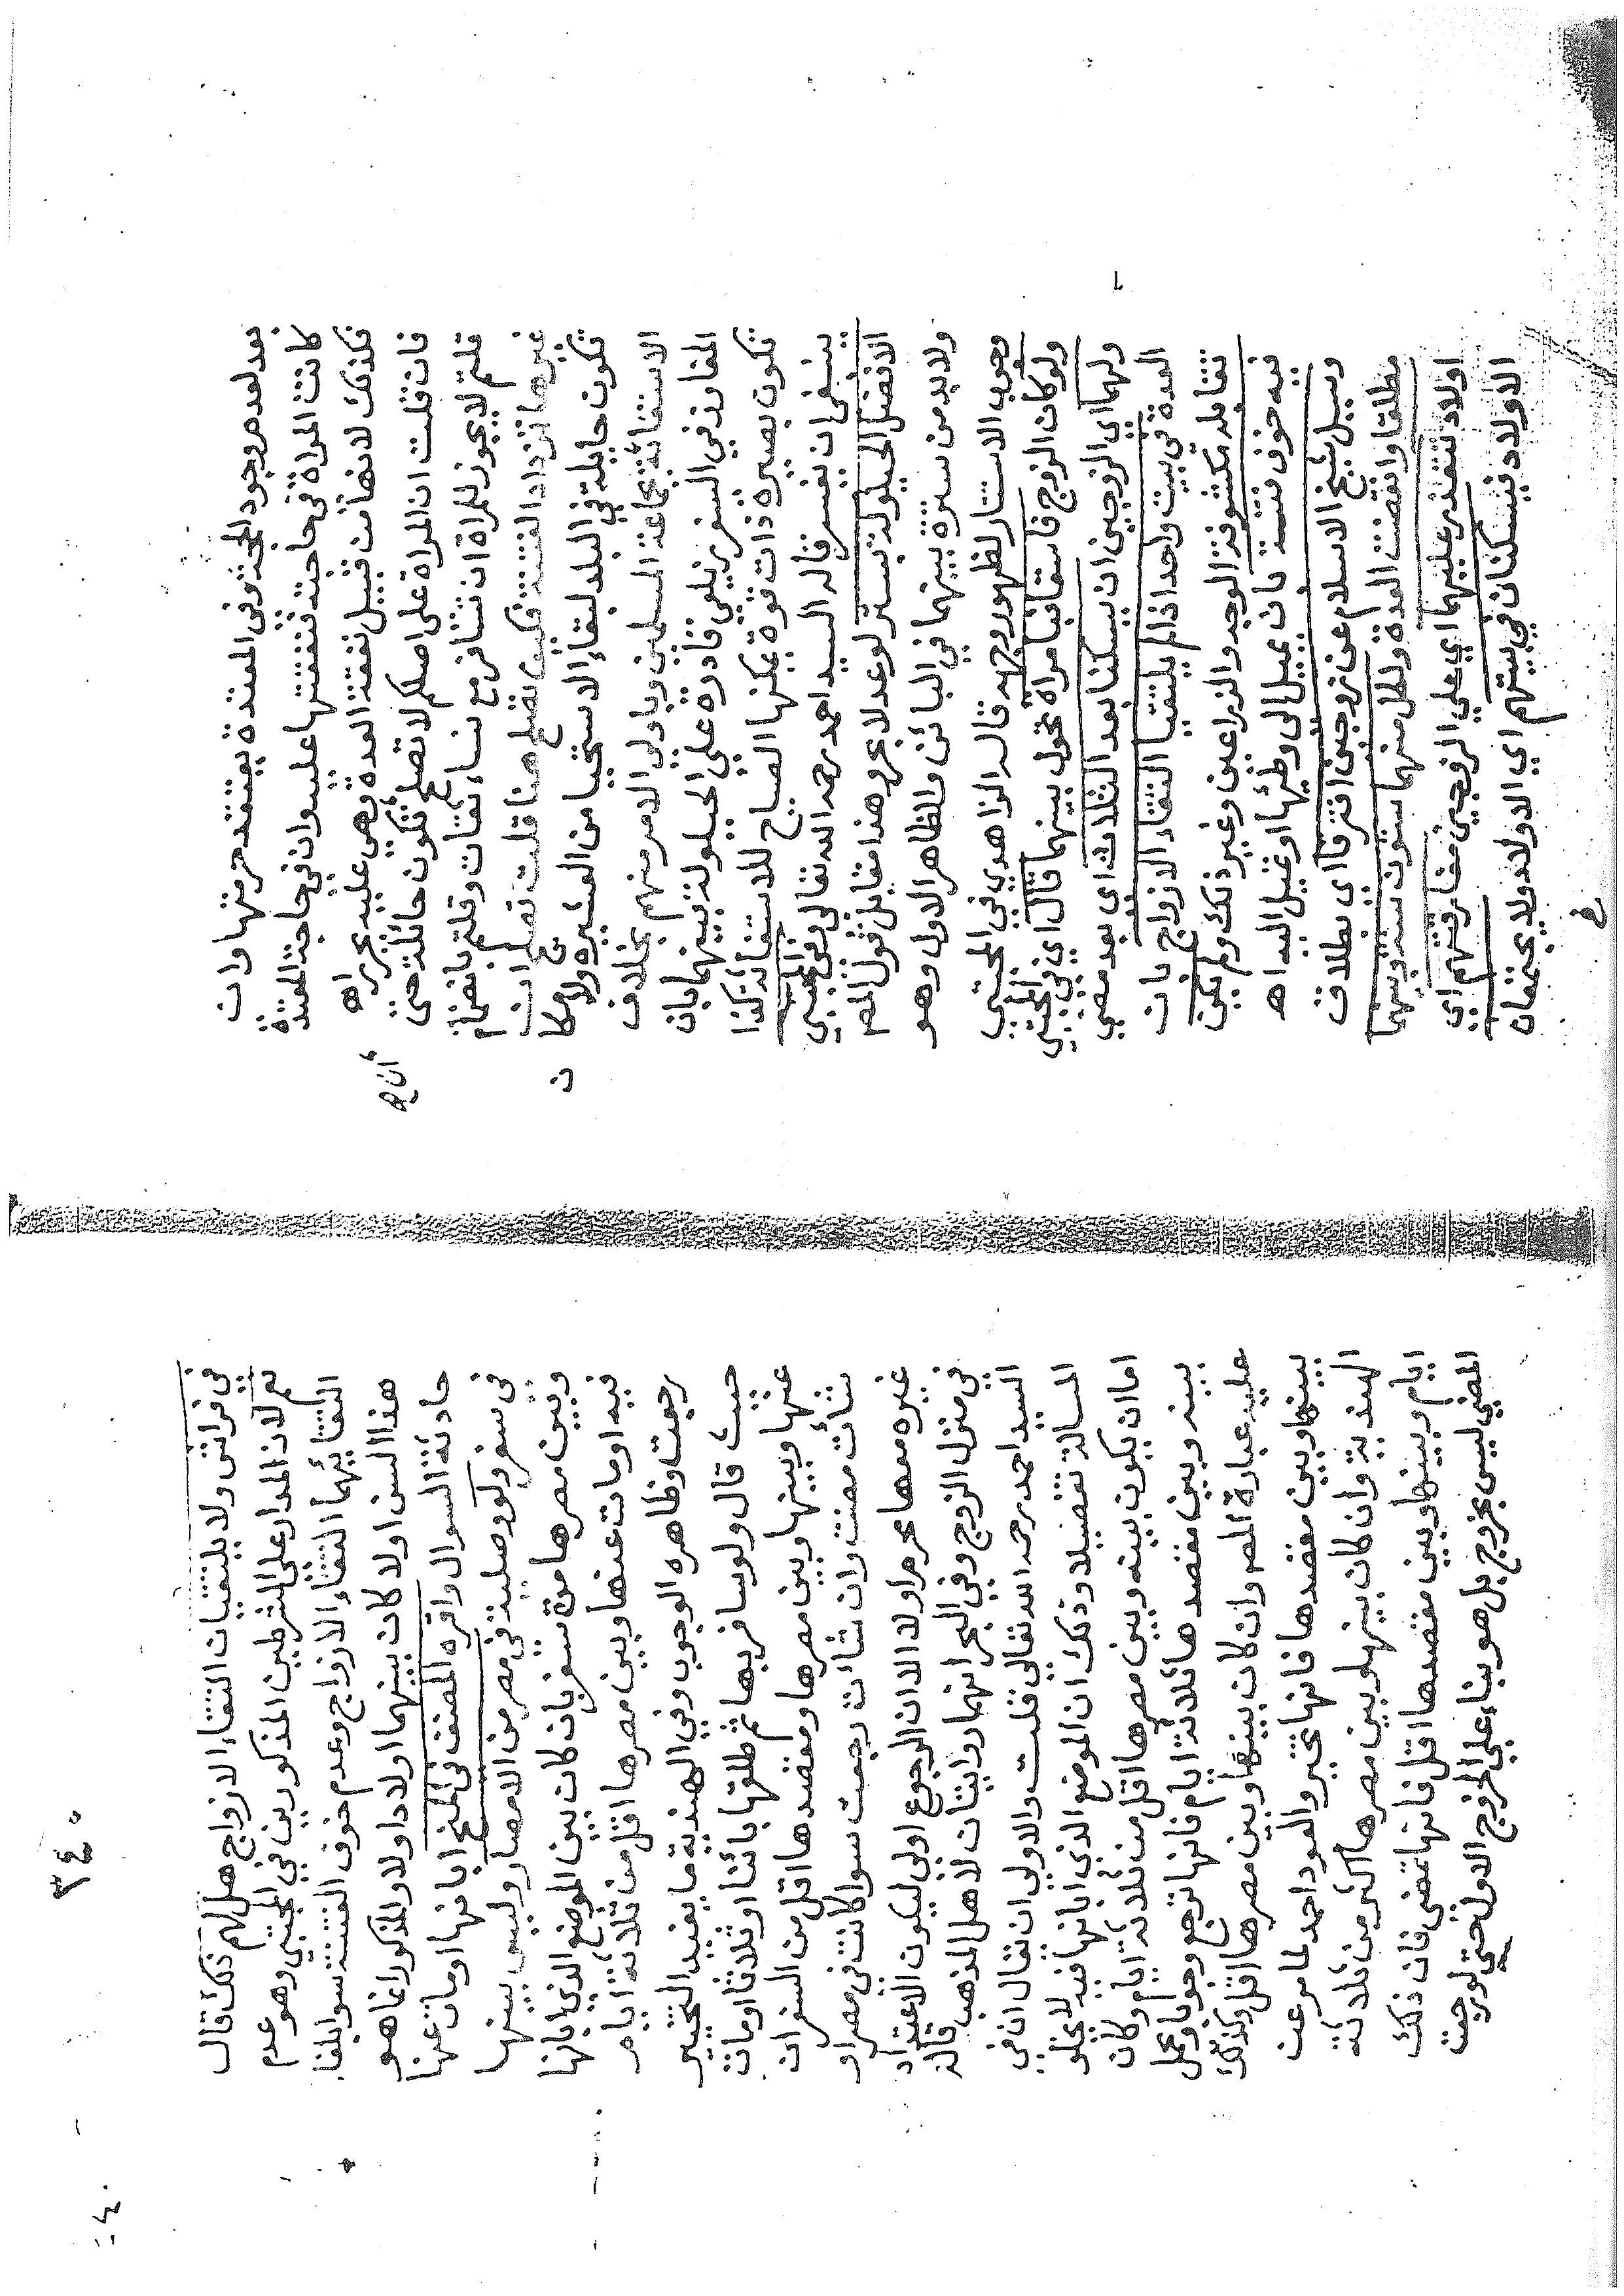 بعد لعدم وجود المحتد وفى المعتدة يعتقد حرمتها وان
كانت المراة في حاجته فنفقتها عليه وان في حاجة المعتدة
فكذلك لانها من قبيل نفقة العدة وهي عليه بحرراه
فان قلت ان المراة على اصلكم لا تصلح ان تكون حائلة حتى
قلتم لا يجوز للمراة ان تسافر مع نساء ثقات وقلتم بانضمام
غيرها تزداد الفتنة فكيف تصلح هنا قلت تصلح ان
تكون حايلة في البلد لبقاء الاستحيا من العشيرة ولامكان
الاستغاثة بجماعة المسلمين وباولي الامر منهم بخلاف
المفاوز في السفر زيلعي قادرة على الحيلولة بينهما بان
تكون بصيرة ذات قوة يمكنها الصياح للاستغاثة كذا
ينبغى ان يفسر قاله السيد احمد رحمه الله تعالى وفي المجتبي
الافضل الحيلولة بستر لو عدلا بحر وهذا مقابل قول المصر
ولابد من سترة بينهما في البائن والظاهر الاول وهو
وجوب الاستتار لظهور وجهه قال الزاهدي في المجتبي
ولو كان الزوج فاسقا فبامراة تحول بينهما قال اي في المجتبي
ولهما اى الزوجين ان يسكنا بعد الثلاث اى بعد مضي
العدة في بيت واحد اذا لم يلتقيا التقاء الازواج بان
تقابله مكشوفة الوجه والذراعين وغير ذلك ولم يكن
فيه خوف فتنة بان يميل الى وطئها او تميل اليه اهـ
وسيل شيخ الاسلام عن زوجين افترقا اى بطلاق
مطلقا وانقضت العدة ولكل منهما ستون سنة وبينهما
اولاد تتعذر عليهما اي على الزوجين مفارقتهم اي
الاولاد فيسكنان في بيتهم اي الاولاد ولا يجتمعان
في
في فراش ولا يلتقيان التقاء الازواج هل لهم ذلك قال
نعم لان المدار على الشرطين المذكورين في المجتبي وهو عدم
التقائهما التقاء الازواج وعدم خوف الفتنة سوا بلغا
هذا السن اولا كان بينهما اولادا ولا والمذكور انما هو
حادثة السوال واقره المصنف فى المنح ابانها او مات عنها
في سفر ولو وصلية في مصر من الامصار وليس بينها
وبين مصرها مدة سفر بان كان بين الموضع الذي ابانها
فيه او مات عنها وبين مصرها اقل من ثلاثة ايام
رجعت وظاهره الوجوب وفي الهندية ما يفيد التخيير
حيث قال ولو سافر بها ثم طلقها بائنا او ثلاثا او مات
عنها وبينها وبين مصرها ومقصدها اقل من السفر ان
شأت مضت وان شأت رجعت سوا كانت في مصر او
غيره معها محرم اولا الا ان الرجوع اولي ليكون الاعتداد
في منزل الزوج وفي البحر انهما روايتان لاهل المذهب قاله
السيد احمد رحمه الله تعالى قلت والاولي ان تقال ان في
المسالة تفصيلا وذلك ان الموضع الذى ابانها فيه لا يخلو
اما ان يكون بينه وبين مصرها اقل من ثلاثة ايام وكان
بينه وبين مقصدها ثلاثة ايام فانها ترجع وجوبا وتحمل
عليه عبارة المصر وان كان بينها وبين مصرها اقل وكذلك
بينها وبين مقصدها فانها تخير والعود احمد لما مر عن
الهندية وان كان بينها وبين مصرها اكثر من ثلاثة
ايام وبينها وبين مقصدها اقل فانها تمضى فان ذلك
المضي ليس بخروج بل هو بناء على الخروج الاول حتي لو رجعت
٣٤٠